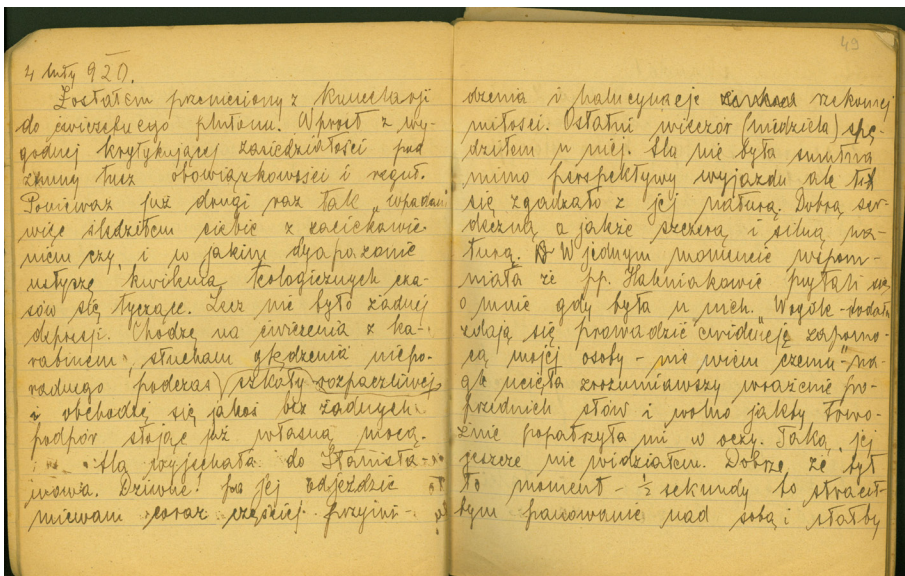 4 luty 920.
Zostałem przeniesiony z Kancelarji
do ćwiczebnego plutonu. Wprost z wy-
godnej krytykującej zasiedziałości pod
zimny tusz obowiązkowości i reguł.
Ponieważ już drugi raz tak „wpadam"
więc śledziłem siebie z zaciekawie
niem czy i w jakim dyapozonie
usłyszę kwilenia teologicznych cza-
sów się tyczące. Lecz nie było żadnej
depresji. Chodzę na ćwiczenia z ka-
rabinem, słucham ględzenia niepo-
radnego podczas szkoły rozpaczliwej
i obchodzę się jakoś bez żadnych
podpór stojąc już własną mocą.
Ala wyjechała do Stanisła-
wowa. Dziwne! po jej odjeździe
miewam coraz częściej przywi-
49
dzenia i halucynacje rzekomej
miłości. Ostatni wieczór (niedziela) spę-
dziłem u niej. Ala nie była smutna
mimo perspektywy wyjazdu ale to
się zgadzało z jej naturą. Dobrą ser-
deczną a jakże szczerą i silną na-
turą. W jednym momencie wspom-
niała że pp. Hahniakowie pytali się
o mnie gdy była u nich. Wogóle - dodała
zdają się prowadzić ewidencję zapomo-
cą mojej osoby - nie wiem czemu - na-
gle ucięła zrozumiawszy wrażenie po-
przednich słów i wolno jakby
popatrzyła mi w oczy. Taką jej
jeszcze nie widziałem. Dobrze że był
to moment - ½ sekundy bo stracił-
bym panowanie nad sobą i stałby